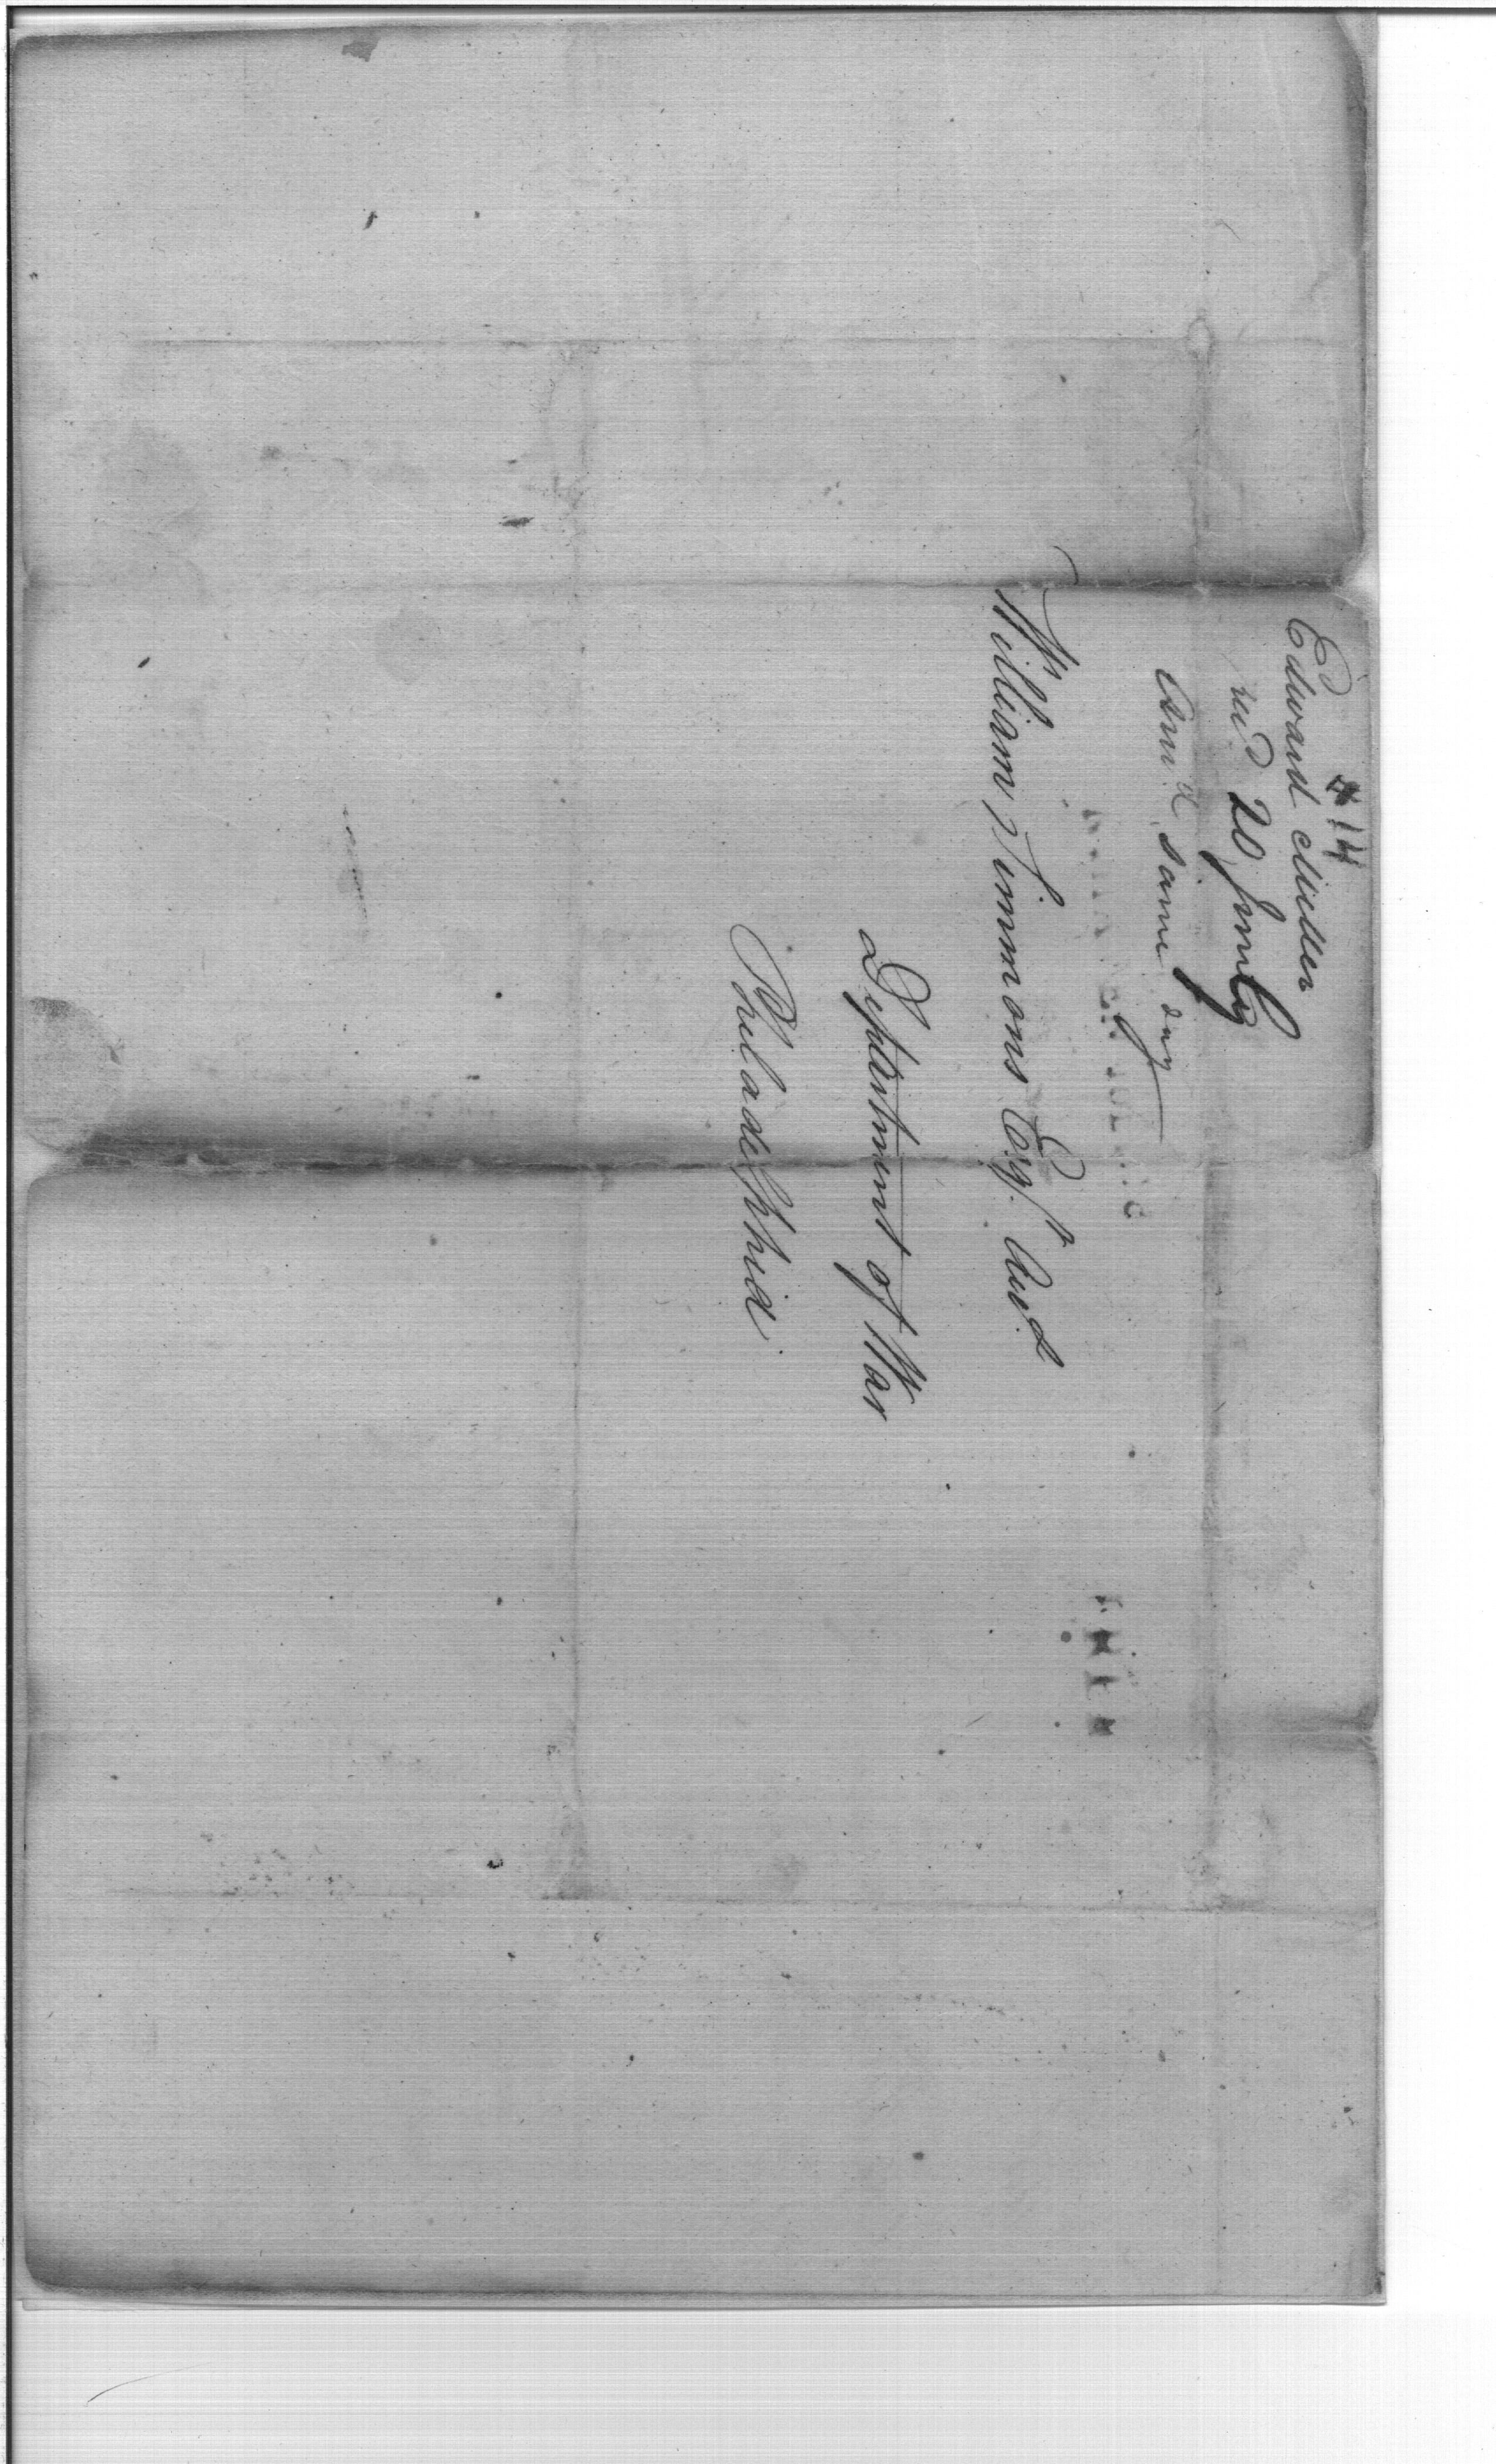 * 14
Edward Miller
recd 20 Jany
ansd same day
William Simmons Esqr. Acct
Department of War
Philadelphia.